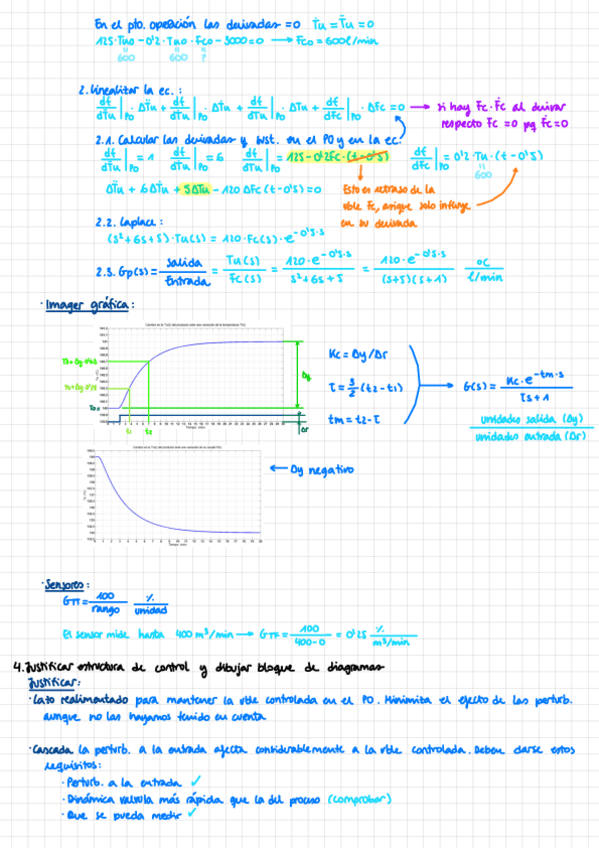 En el pto. operación las derivadas =0 Ṫu = T̈u = 0
125·Tuo - 0'2·Tuo·Fco - 3000=0 → Fco = 600 l/min
600 600 ?
2. Linealitar la ec.:
df/dT̈u|PO · ΔT̈u + df/dṪu|PO · ΔṪu + df/dTu|PO · ΔTu + df/dFc|PO · ΔFc = 0 → si hay Fc·Ḟc al derivar
respecto Fc =0 pq Ḟc=0
2.1. Calcular las derivadas y sust. en el PO y en la ec:
df/dT̈u|PO = 1 df/dṪu|PO = 6 df/dTu|PO = 125 - 0'2Fc·(t-0'5) df/dFc|PO = 0'2·Tu·(t-0'5)
600
ΔT̈u + 6ΔṪu + 5ΔTu - 120ΔFc(t-0'5)=0
Esto es retraso de la
vble Fc, asique solo influye
en su derivada
2.2. Laplace:
(s²+6s+5)·Tu(s) = 120·Fc(s)·e^-0'5·s
2.3. Gp(s) = Salida/Entrada = Tu(s)/Fc(s) = 120·e^-0'5·s/s²+6s+5 = 120·e^-0'5·s/(s+5)(s+1) ºC/l/min
· Imagen gráfica:
Δy
To
t1 t2 Δr
Tiempo (min)
Kc = Δy/Δr
τ = 3/2 (t2-t1)
tm = t2-τ
G(s) = Kc·e^-tm·s/τs+1
unidades salida (Δy)/unidades entrada (Δr)
Tiempo (min)
← Δy negativo
· Sensores:
GTT = 100/rango %/unidad
El sensor mide hasta 400 m³/min → GTF = 100/400-0 = 0'25 %/m³/min
4. Justificar estructura de control y dibujar bloque de diagramas
Justificar:
· Lazo realimentado para mantener la vble controlada en el PO. Minimita el efecto de las perturb.
aunque no las hayamos tenido en cuenta
· Cascada la perturb. a la entrada afecta considerablemente a la vble controlada. Deben darse estos
requisitos:
· Perturb. a la entrada ✓
· Dinámica valvula más rápida que la del proceso (comprobar)
· Que se pueda medir ✓